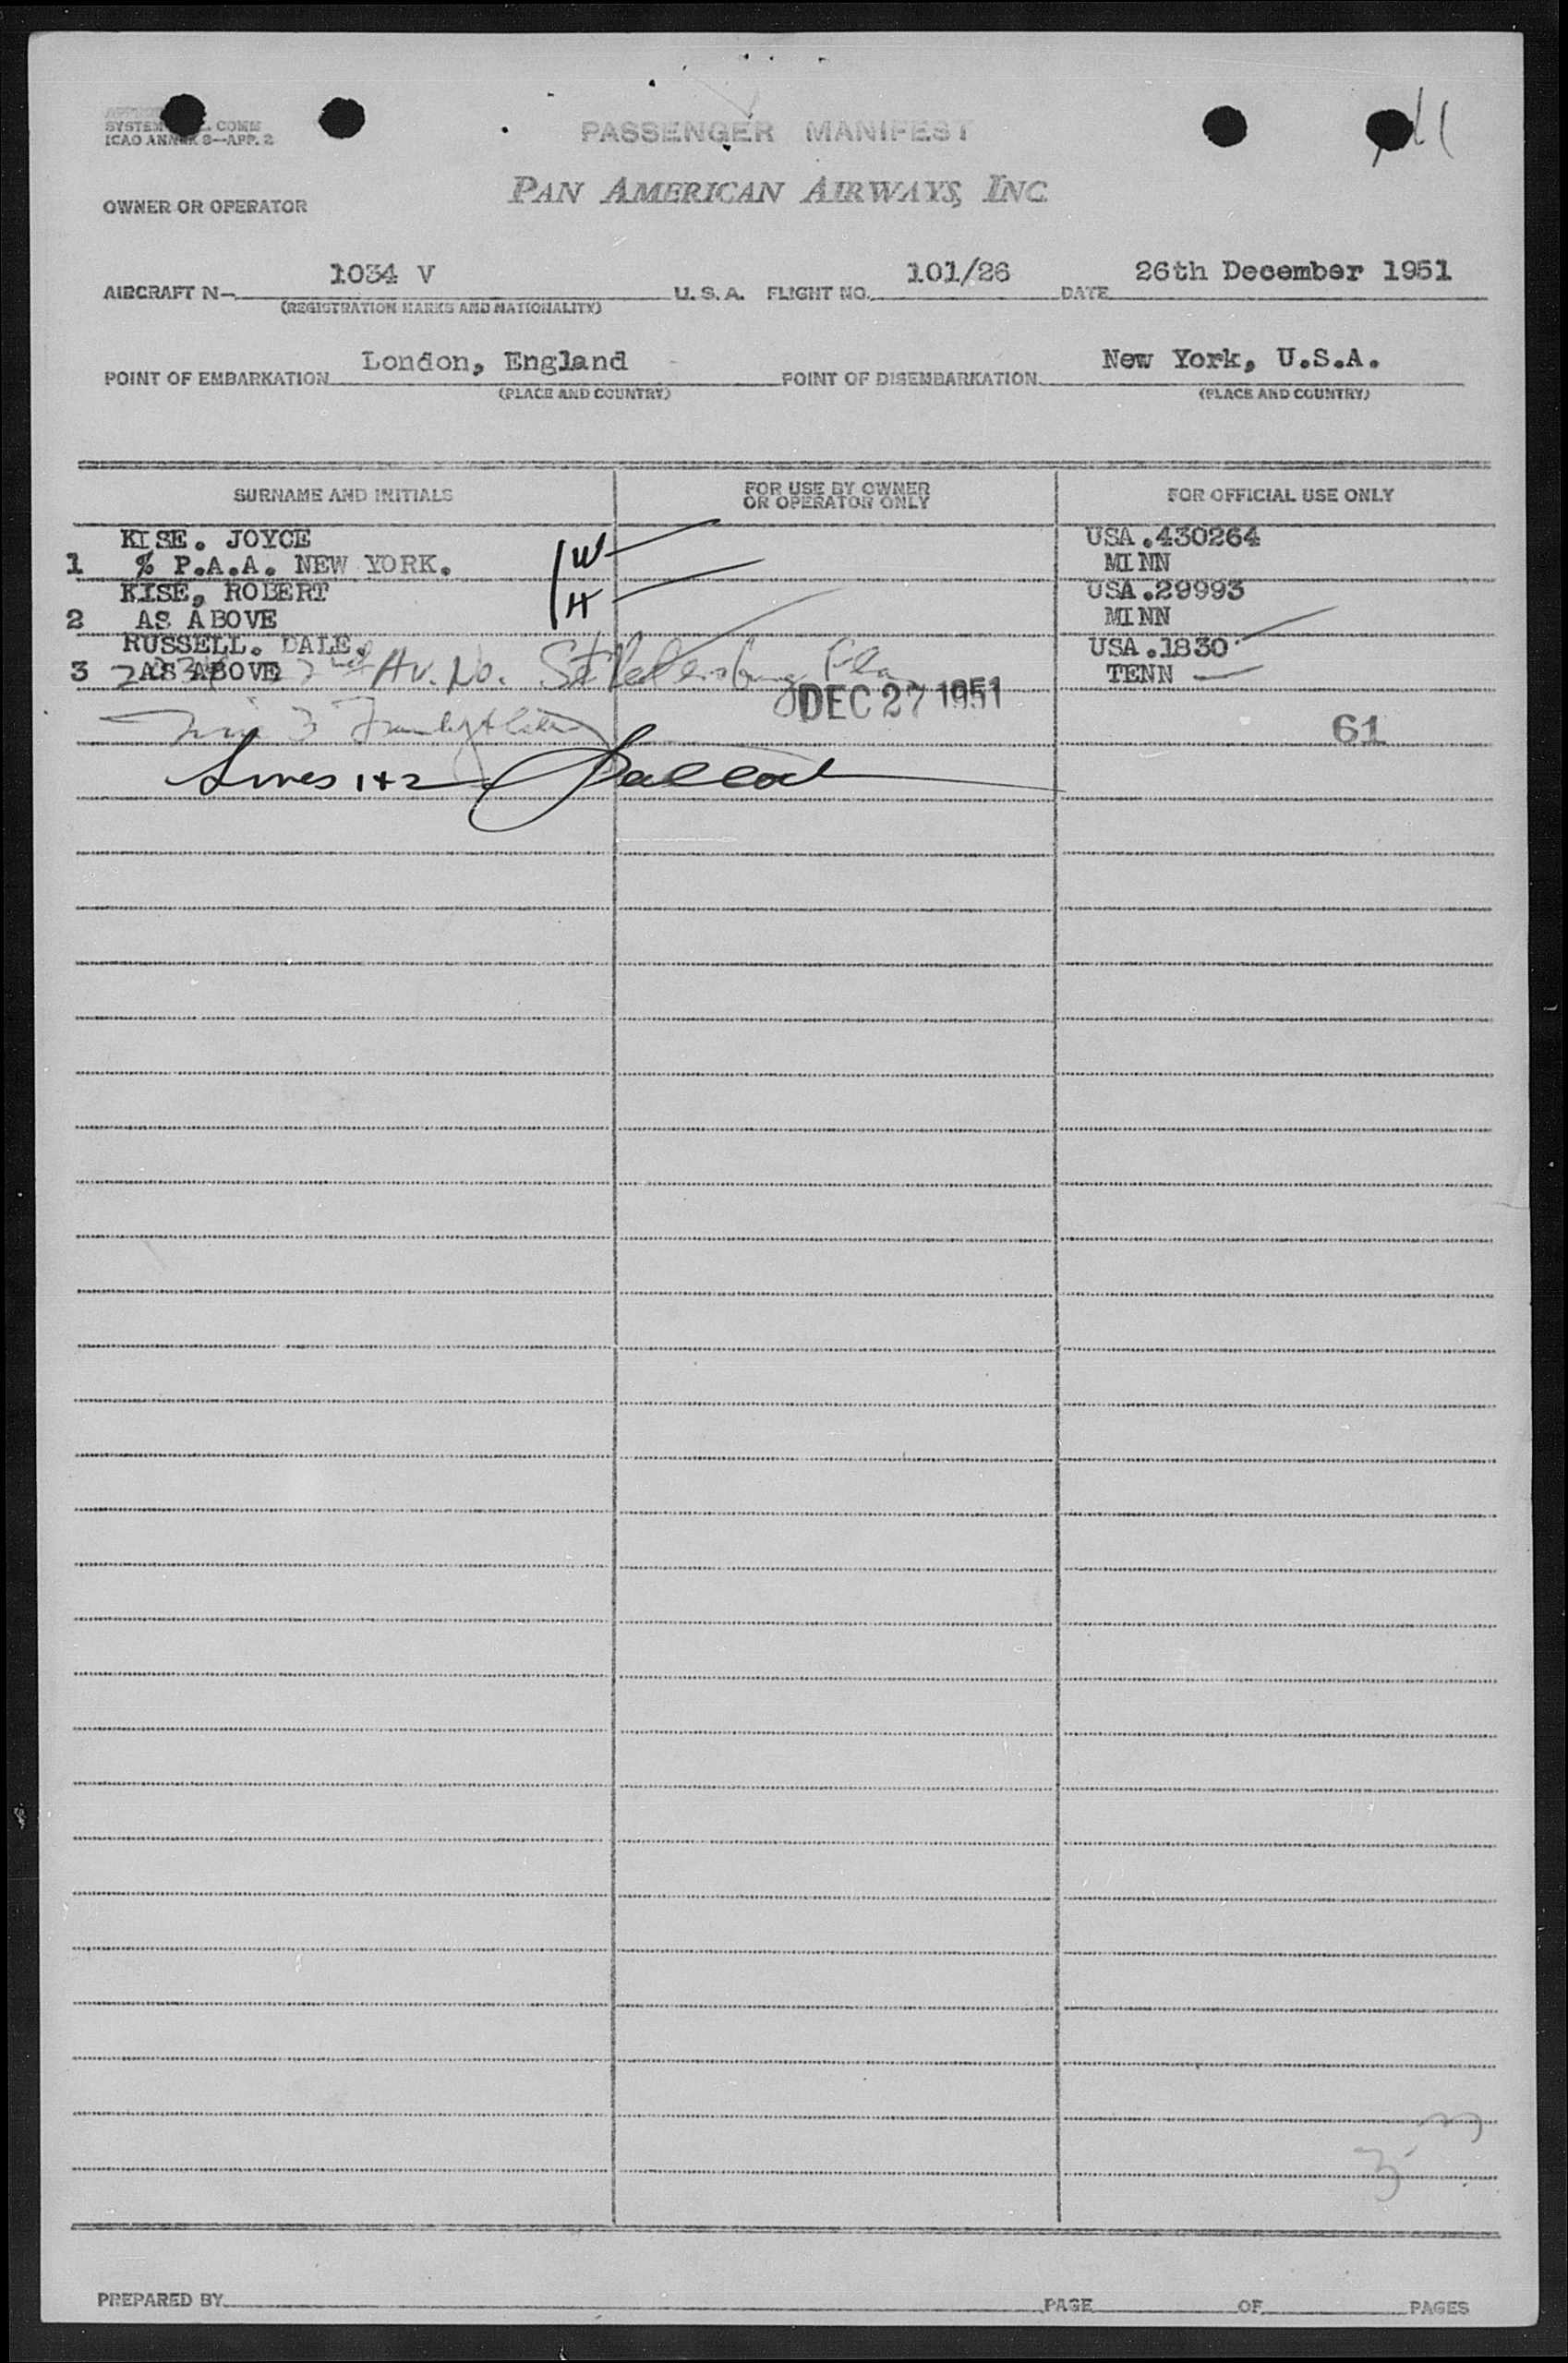 SYSTEM
COMM
ICAO ANNEX 8—APP. 2
PASSENGER MANIFEST
PAN AMERICAN AIRWAYS, INC.
OWNER OR OPERATOR
AIRCRAFT N- 1034 V U. S. A. FLIGHT NO. 101/26 DATE 26th December 1951
(REGISTRATION MARKS AND NATIONALITY)
POINT OF EMBARKATION London, England POINT OF DISEMBARKATION New York, U.S.A.
(PLACE AND COUNTRY) (PLACE AND COUNTRY)
SURNAME AND INITIALS FOR USE BY OWNER OR OPERATOR ONLY FOR OFFICIAL USE ONLY
KISE. JOYCE USA.430264
1 % P.A.A. NEW YORK. W MINN
KISE, ROBERT USA.29993
2 AS ABOVE H MINN
RUSSELL. DALE. USA.1830
3 AS ABOVE 2nd Av. No. St Petersburg Fla TENN
DEC 27 1951
3 61
Lines 1+2
3
PREPARED BY PAGE OF PAGES